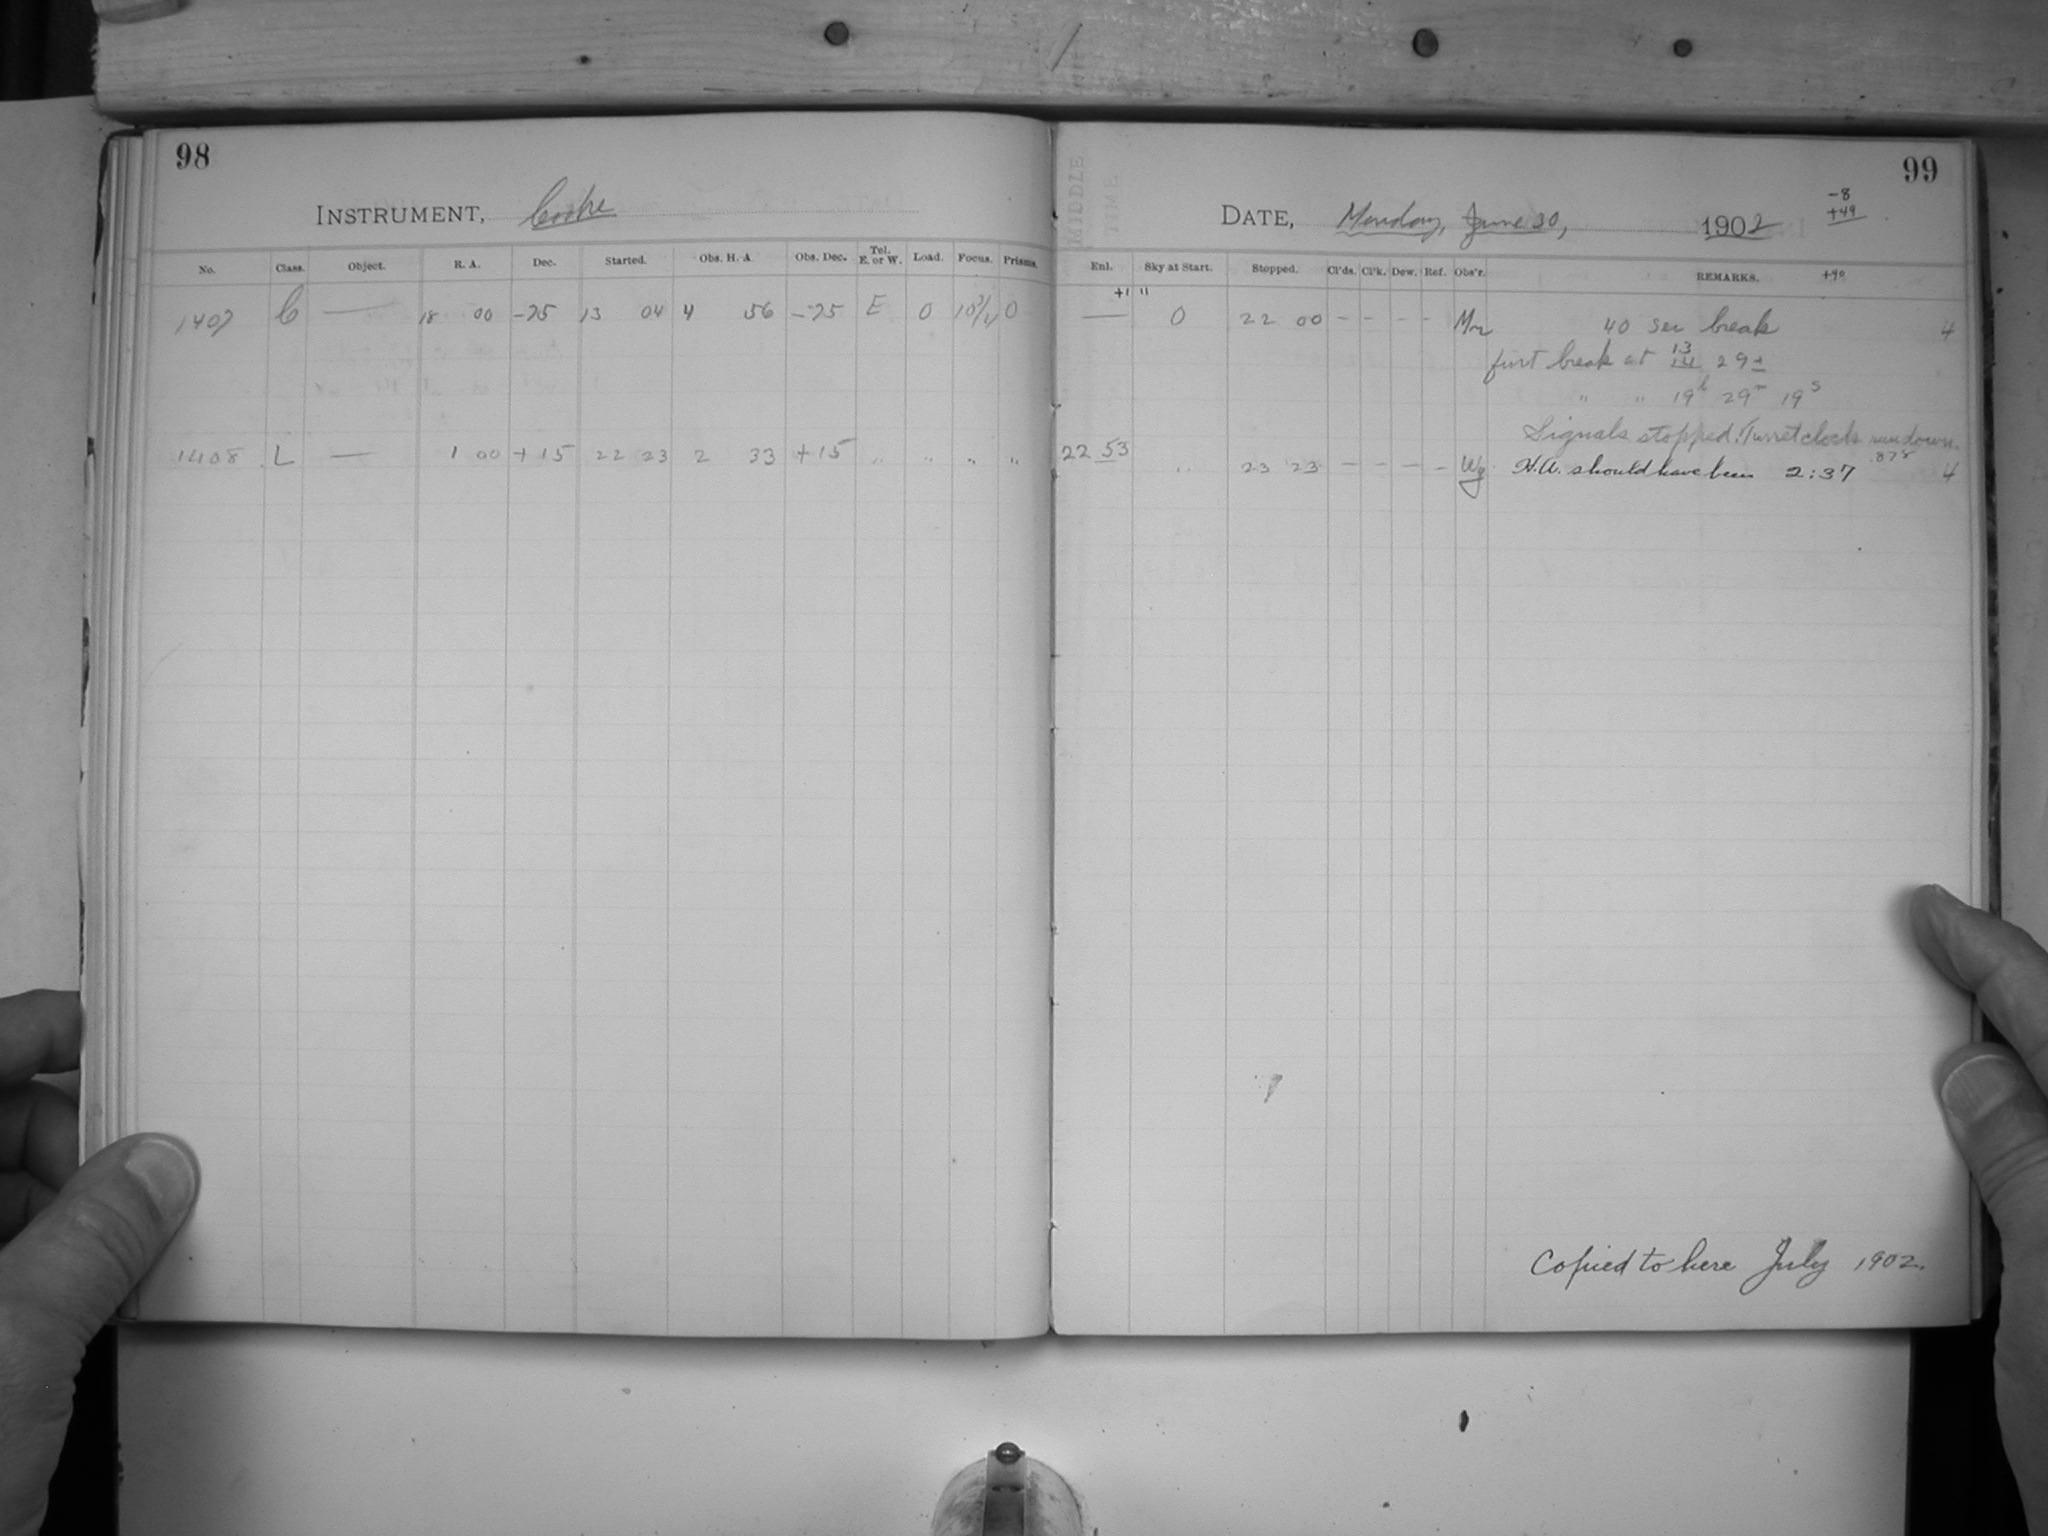 98
INSTRUMENT, Cooke
No. Class. Object. R. A. Dec. Started. Obs. H. A. Obs. Dec. Tel. E. or W. Load. Focus. Prisms.
1407 C — 18 00 -25 13 04 4 56 -25 E 0 10 3/4 0
1408 L — 1 00 +15 22 23 2 33 +15 " " " "
99
-8
+49
DATE, Monday, June 30, 1902
MIDDLE
TIME
Enl. Sky at Start. Stopped. Cl'ds. Cl'k. Dew. Ref. Obs'r. REMARKS. +40
+1 "
— 0 22 00 - - - - Mr 40 sec break 4
first break at 13 29±
" " 19h 29m 19s
Signals stopped. Turret clock rundown.
22 53 " 23 23 - - - - Wg. H.A. should have been 2:37 .878 4
Copied to here July 1902.